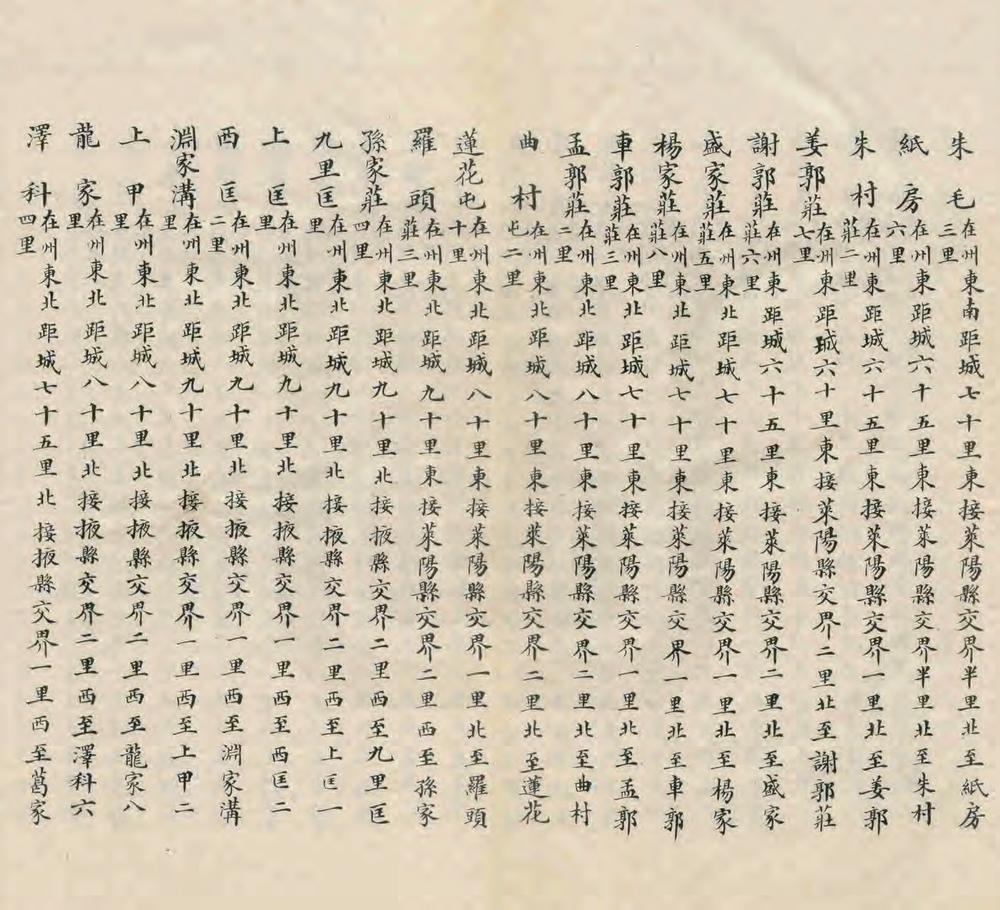 朱毛在州東南距城七十里東接萊陽縣交界半里北至紙房
三里
紙房在州東距城六十五里東接萊陽縣交界半里北至朱村
六里
朱村在州東距城六十五里東接萊陽縣交界一里北至姜郭
莊二里
姜郭莊在州東距城六十里東接萊陽縣交界二里北至謝郭莊
七里
謝郭莊在州東距城六十五里東接萊陽縣交界二里北至盛家
莊六里
盛家莊在州東北距城七十里東接萊陽縣交界一里北至楊家
莊五里
楊家莊在州東北距城七十里東接萊陽縣交界一里北至車郭
莊八里
車郭莊在州東北距城七十里東接萊陽縣交界一里北至孟郭
莊三里
孟郭莊在州東北距城八十里東接萊陽縣交界二里北至曲村
二里
曲村在州東北距城八十里東接萊陽縣交界二里北至蓮花
屯二里
蓮花屯在州東北距城八十里東接萊陽縣交界一里北至羅頭
十里
羅頭在州東北距城九十里東接萊陽縣交界二里西至孫家
莊三里
孫家莊在州東北距城九十里北接掖縣交界二里西至九里匡
四里
九里匡在州東北距城九十里北接掖縣交界二里西至上匡一
里
上匡在州東北距城九十里北接掖縣交界一里西至西匡二
里
西匡在州東北距城九十里北接掖縣交界一里西至淵家溝
二里
淵家溝在州東北距城九十里北接掖縣交界一里西至上甲二
里
上甲在州東北距城八十里北接掖縣交界二里西至龍家八
里
龍家在州東北距城八十里北接掖縣交界二里西至澤科六
里
澤科在州東北距城七十五里北接掖縣交界一里西至葛家
四里